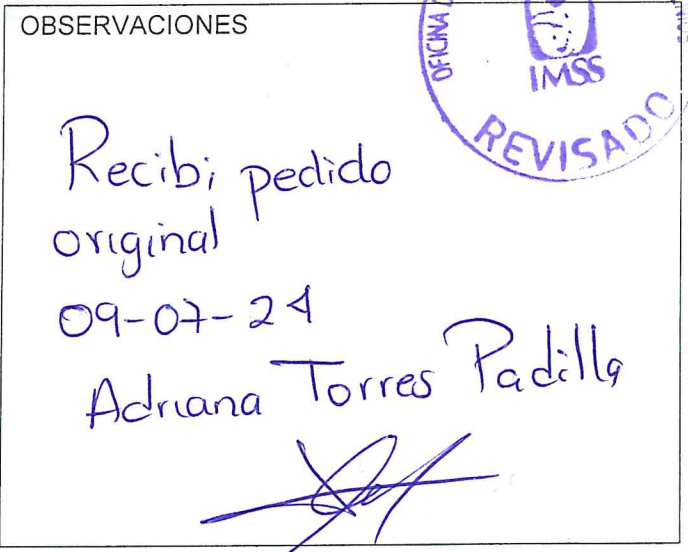 OBSERVACIONES
OFICINA
IMSS
REVISADO
Recibi pedido
original
09-07-24
Adriana Torres Padilla